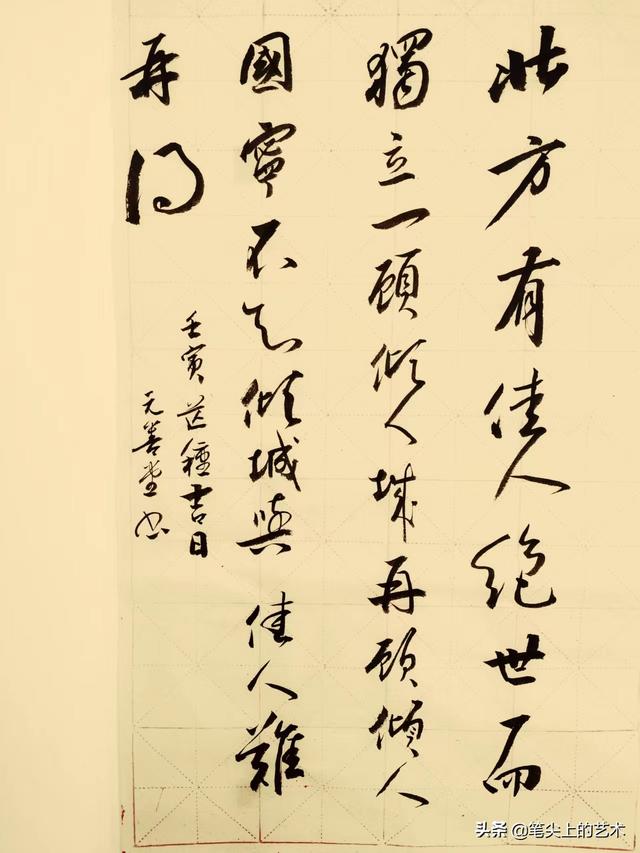 北方有佳人絕世而
獨立一顧傾人城再顧傾人
國寧不知傾城與佳人難
再得
壬寅芒種吉日
善堂书
头条 @笔尖上的艺术